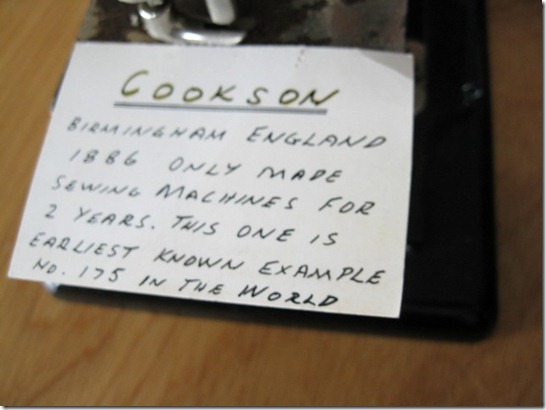 COOKSON
BIRMINGHAM ENGLAND
1886 ONLY MADE
SEWING MACHINES FOR
2 YEARS. THIS ONE IS
EARLIEST KNOWN EXAMPLE
NO. 175 IN THE WORLD